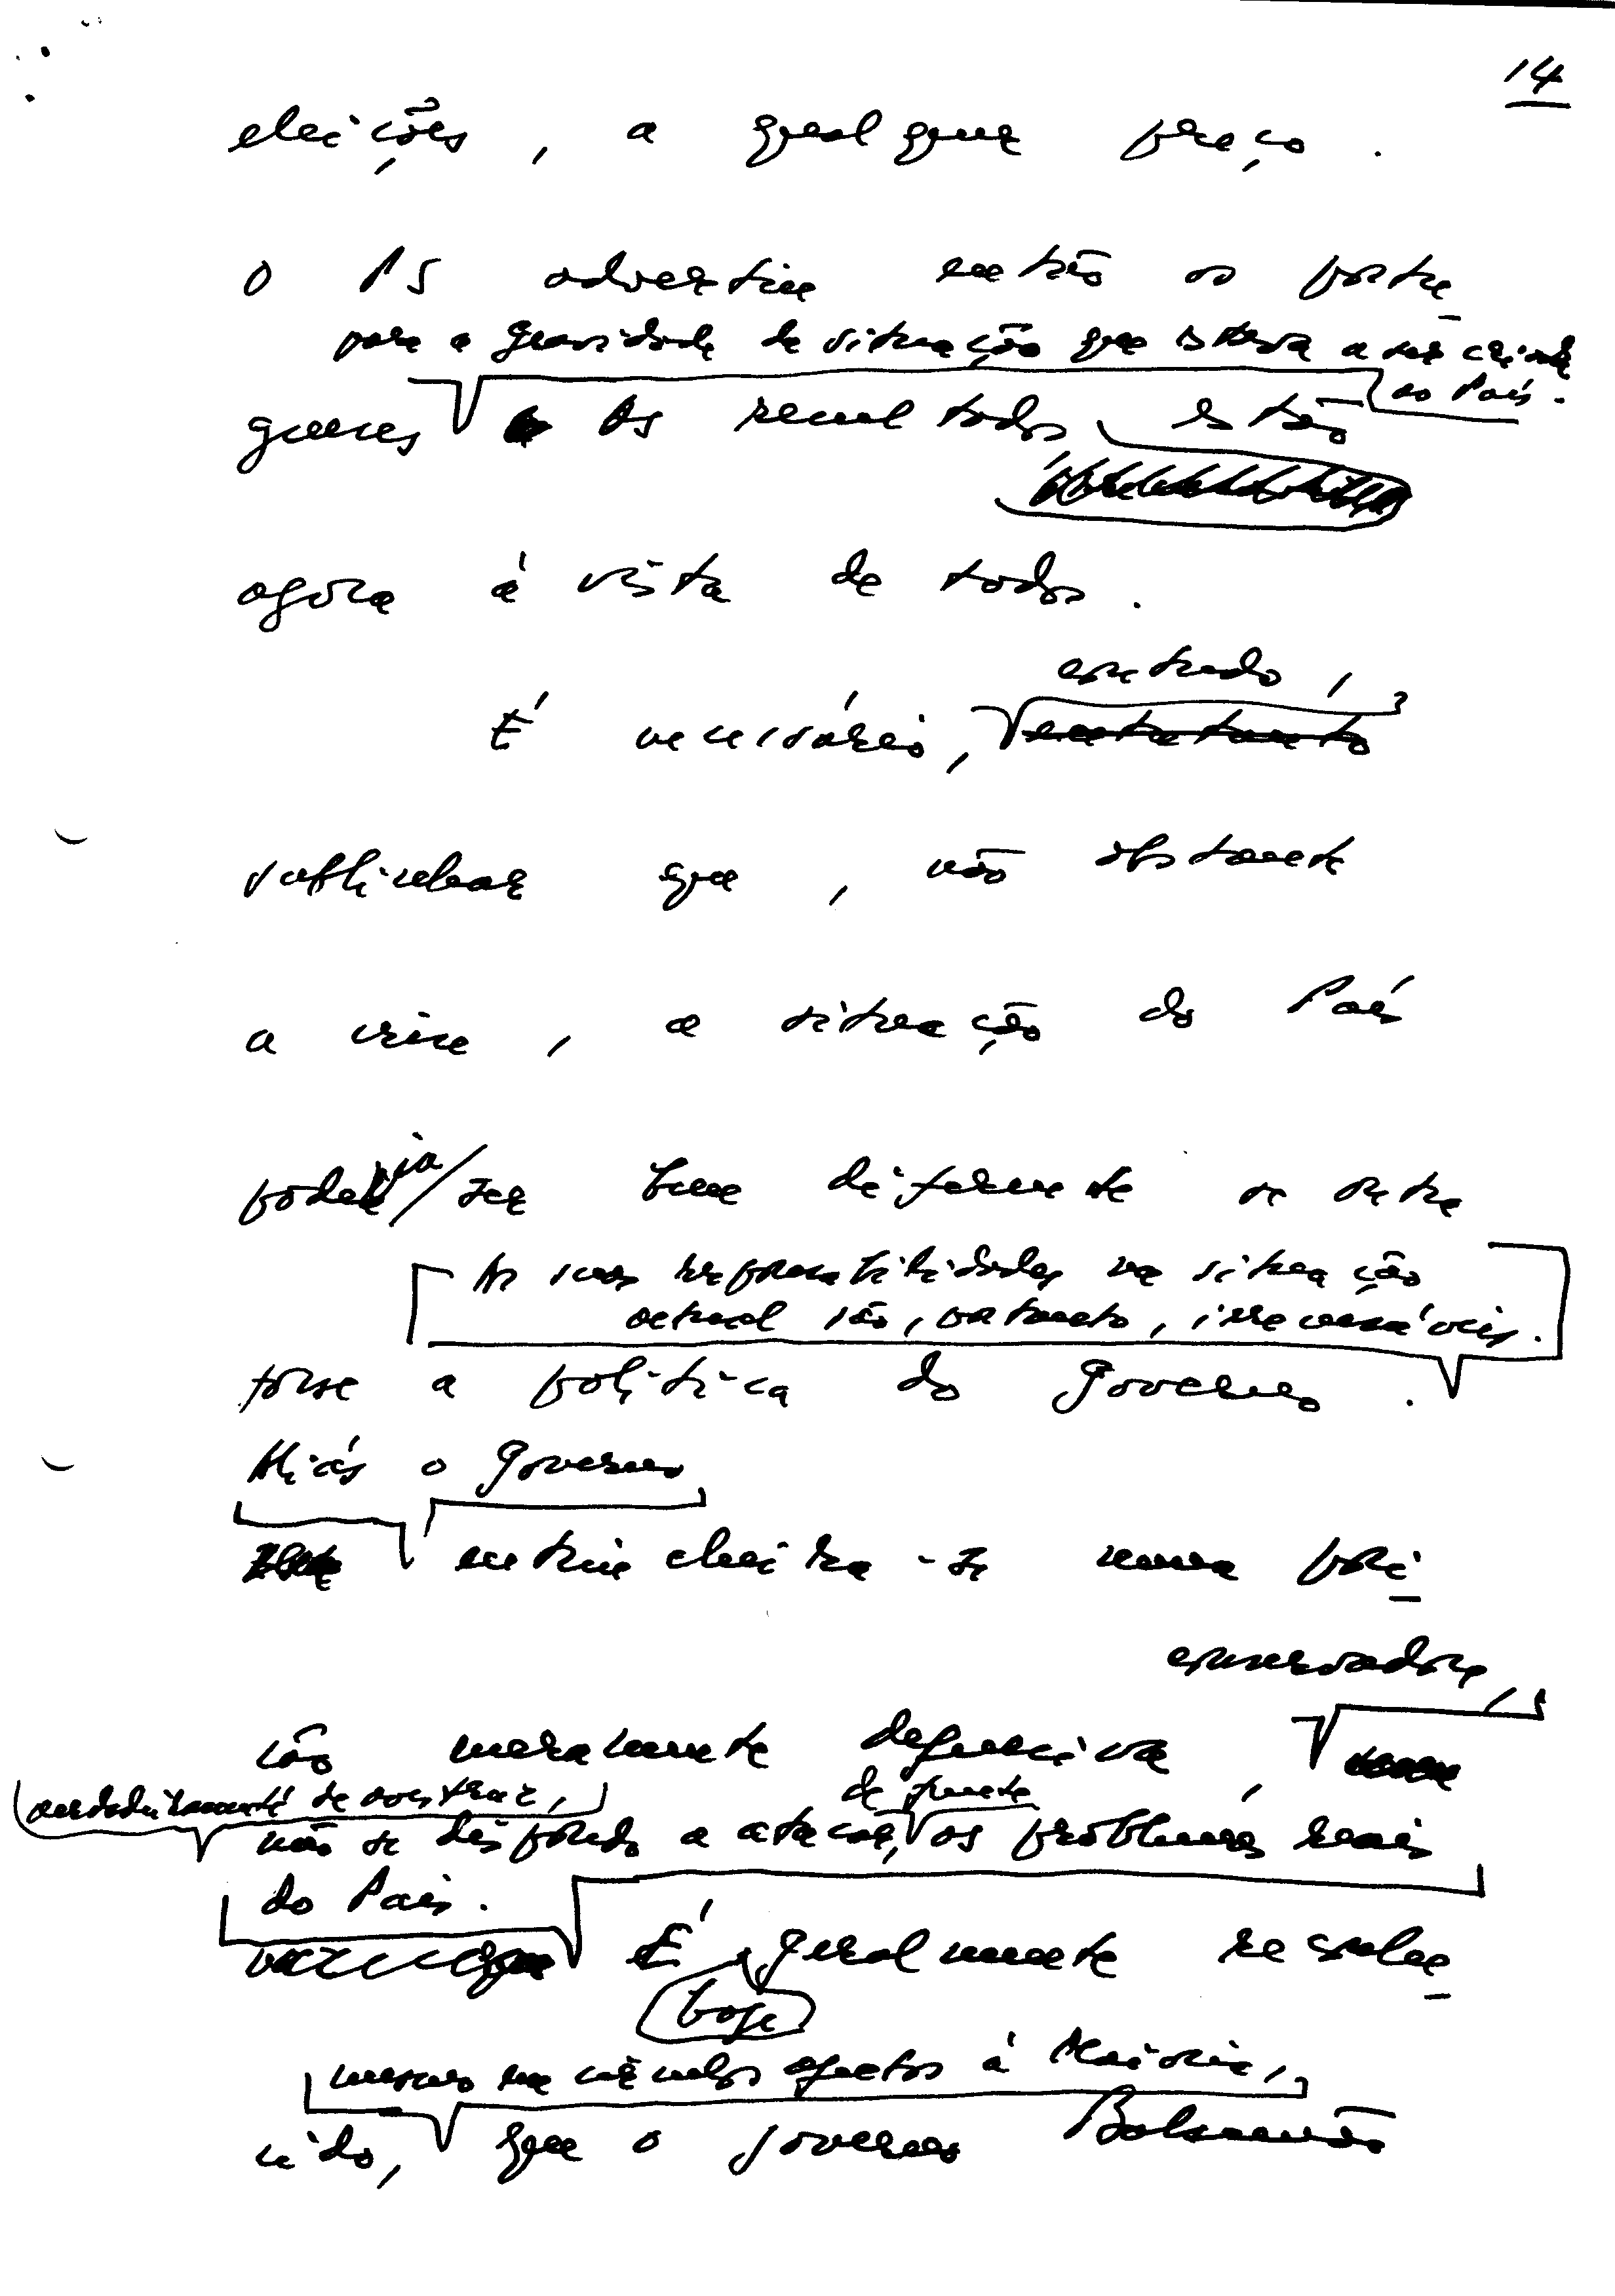 14
eleições, a qualquer preço.
O PS advertiu então os portu-
para a gravidade da situação que estava a ser criada
ao País.
gueses As resultados estão
agora à vista de todos.
contudo,
É necessário, entretanto
sublinhar que, não obstante
a crise, a situação do País
poderia/ser bem diferente se outra
As suas responsabilidades na situação
actual são, portanto, irrecusáveis.
fosse a política do Governo.
Aliás o Governo
entrincheira-se numa posi-
conservadora,
ção meramente defensiva,
verdadeiramente de avestruz,
de frente
não se dispondo a atacar, os problemas reais
do País.
É geralmente reconhe-
hoje
mesmo em círculos afectos à Maioria,
cido, que o governo Balsemão